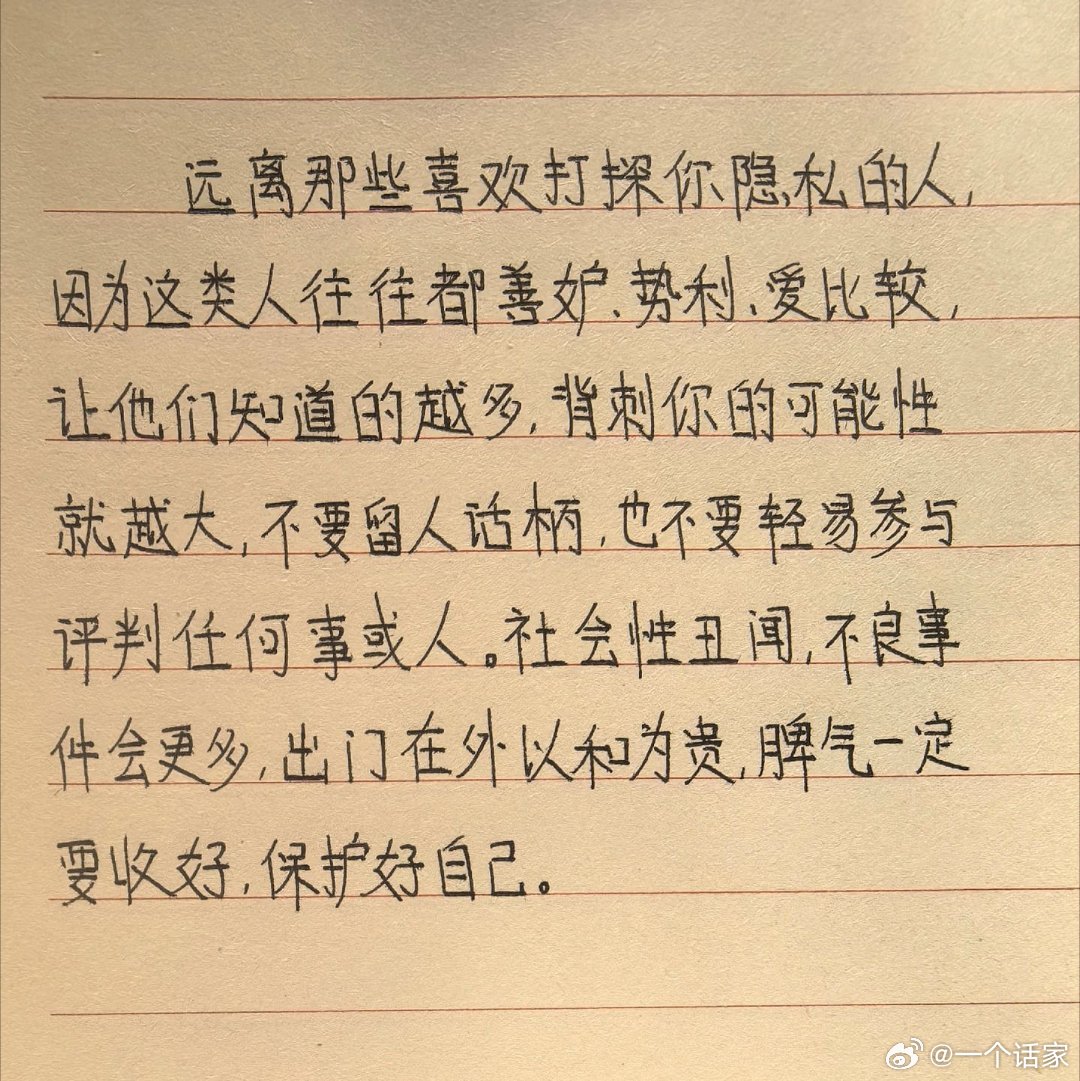 远离那些喜欢打探你隐私的人,
因为这类人往往都善妒、势利、爱比较,
让他们知道的越多,背刺你的可能性
就越大,不要留人话柄,也不要轻易参与
评判任何事或人。社会性丑闻,不良事
件会更多,出门在外以和为贵,脾气一定
要收好,保护好自己。
@一个话家